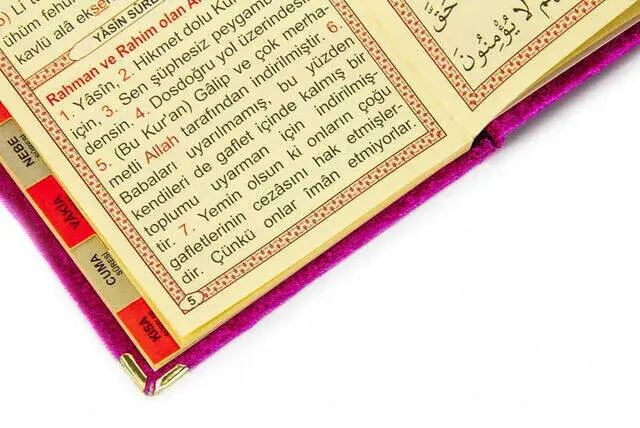 ühüm
kavlü alâ
YÂSÎN
Rahman ve Rahim olan
1. Yâsîn. 2. Hikmet dolu
için, 3. Sen şüphesiz
densin. 4. Dosdoğru yol
5. (Bu Kur'an) Gâlip ve çok merha-
metli Allah tarafından indirilmiştir. 6.
Babaları uyarılmamış, bu yüzden
kendileri de gaflet içinde kalmış bir
toplumu uyarman için indirilmiş-
tir. 7. Yemin olsun ki onların çoğu
gafletlerinin cezasını hak etmişler-
dir. Çünkü onlar îmân etmiyorlar.
5
حَقَّ
لَا يُؤْمِنُونَ
NEBE
VÂKIA
CUMA
SÛRESİ
KISA